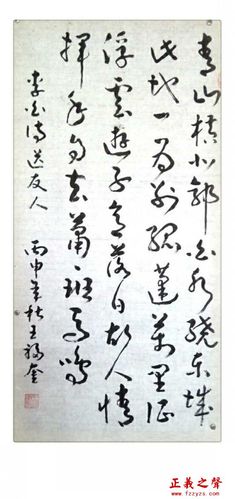 青山横北郭白水绕东城
此地一为别孤蓬萬里征
浮雲遊子意落日故人情
揮手自兹去蕭〻班马鸣
李白诗送友人 丙申年秋王福
正義之聲
www.fzzyzs.com